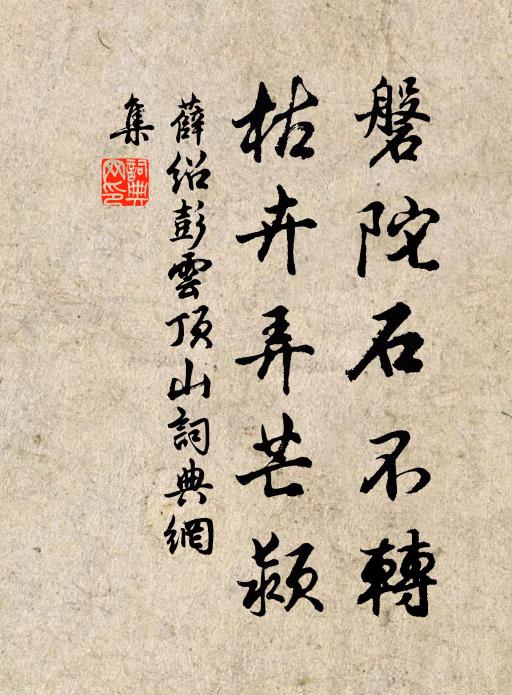 磐陀石不轉
枯卉弄芒颍
薛紹彭雲頂山詞典網
集
詞典網印